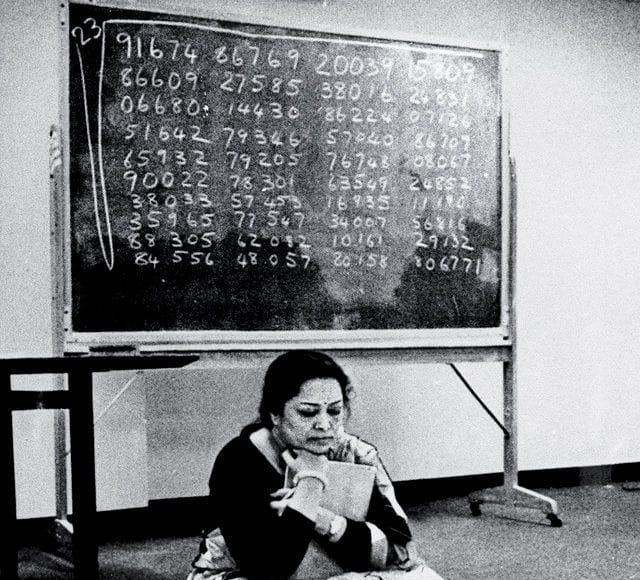 23
91674 86769 20039 15809
86609 27585 38016 24831
06680 14430 86224 07126
51642 79346 57040 86709
65932 79205 76748 08067
90022 78301 63549 24852
38033 57453 16935 11190
35965 77547 34007 56816
88305 62082 10161 29132
84556 48057 80158 806771